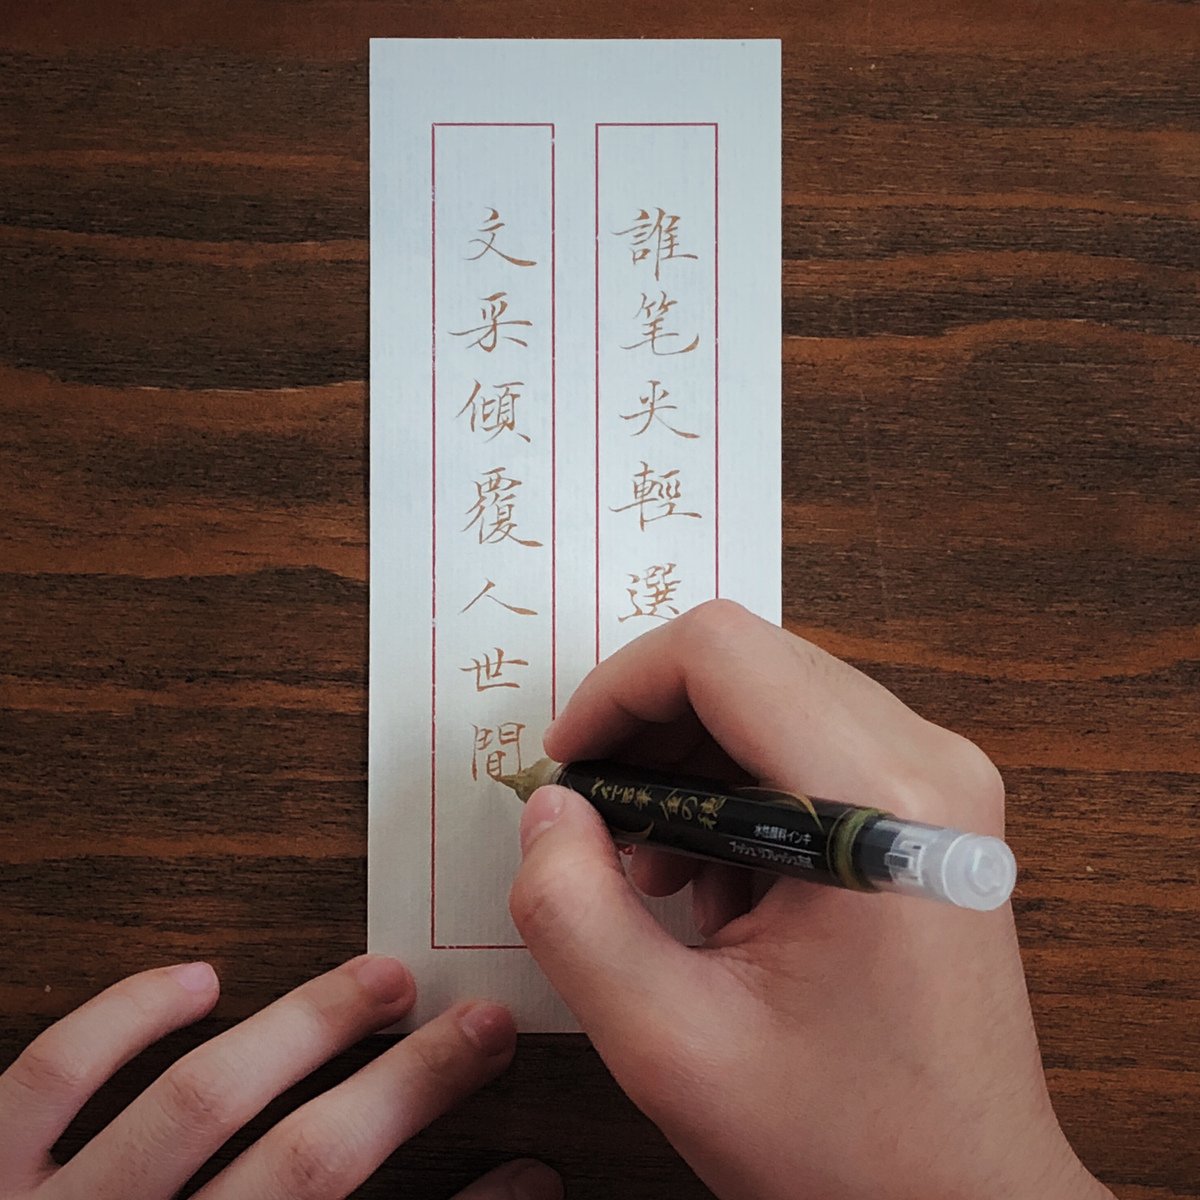 誰笔尖輕選
文采傾覆人世間
ぺんてる筆 金の穂
水性顔料インキ